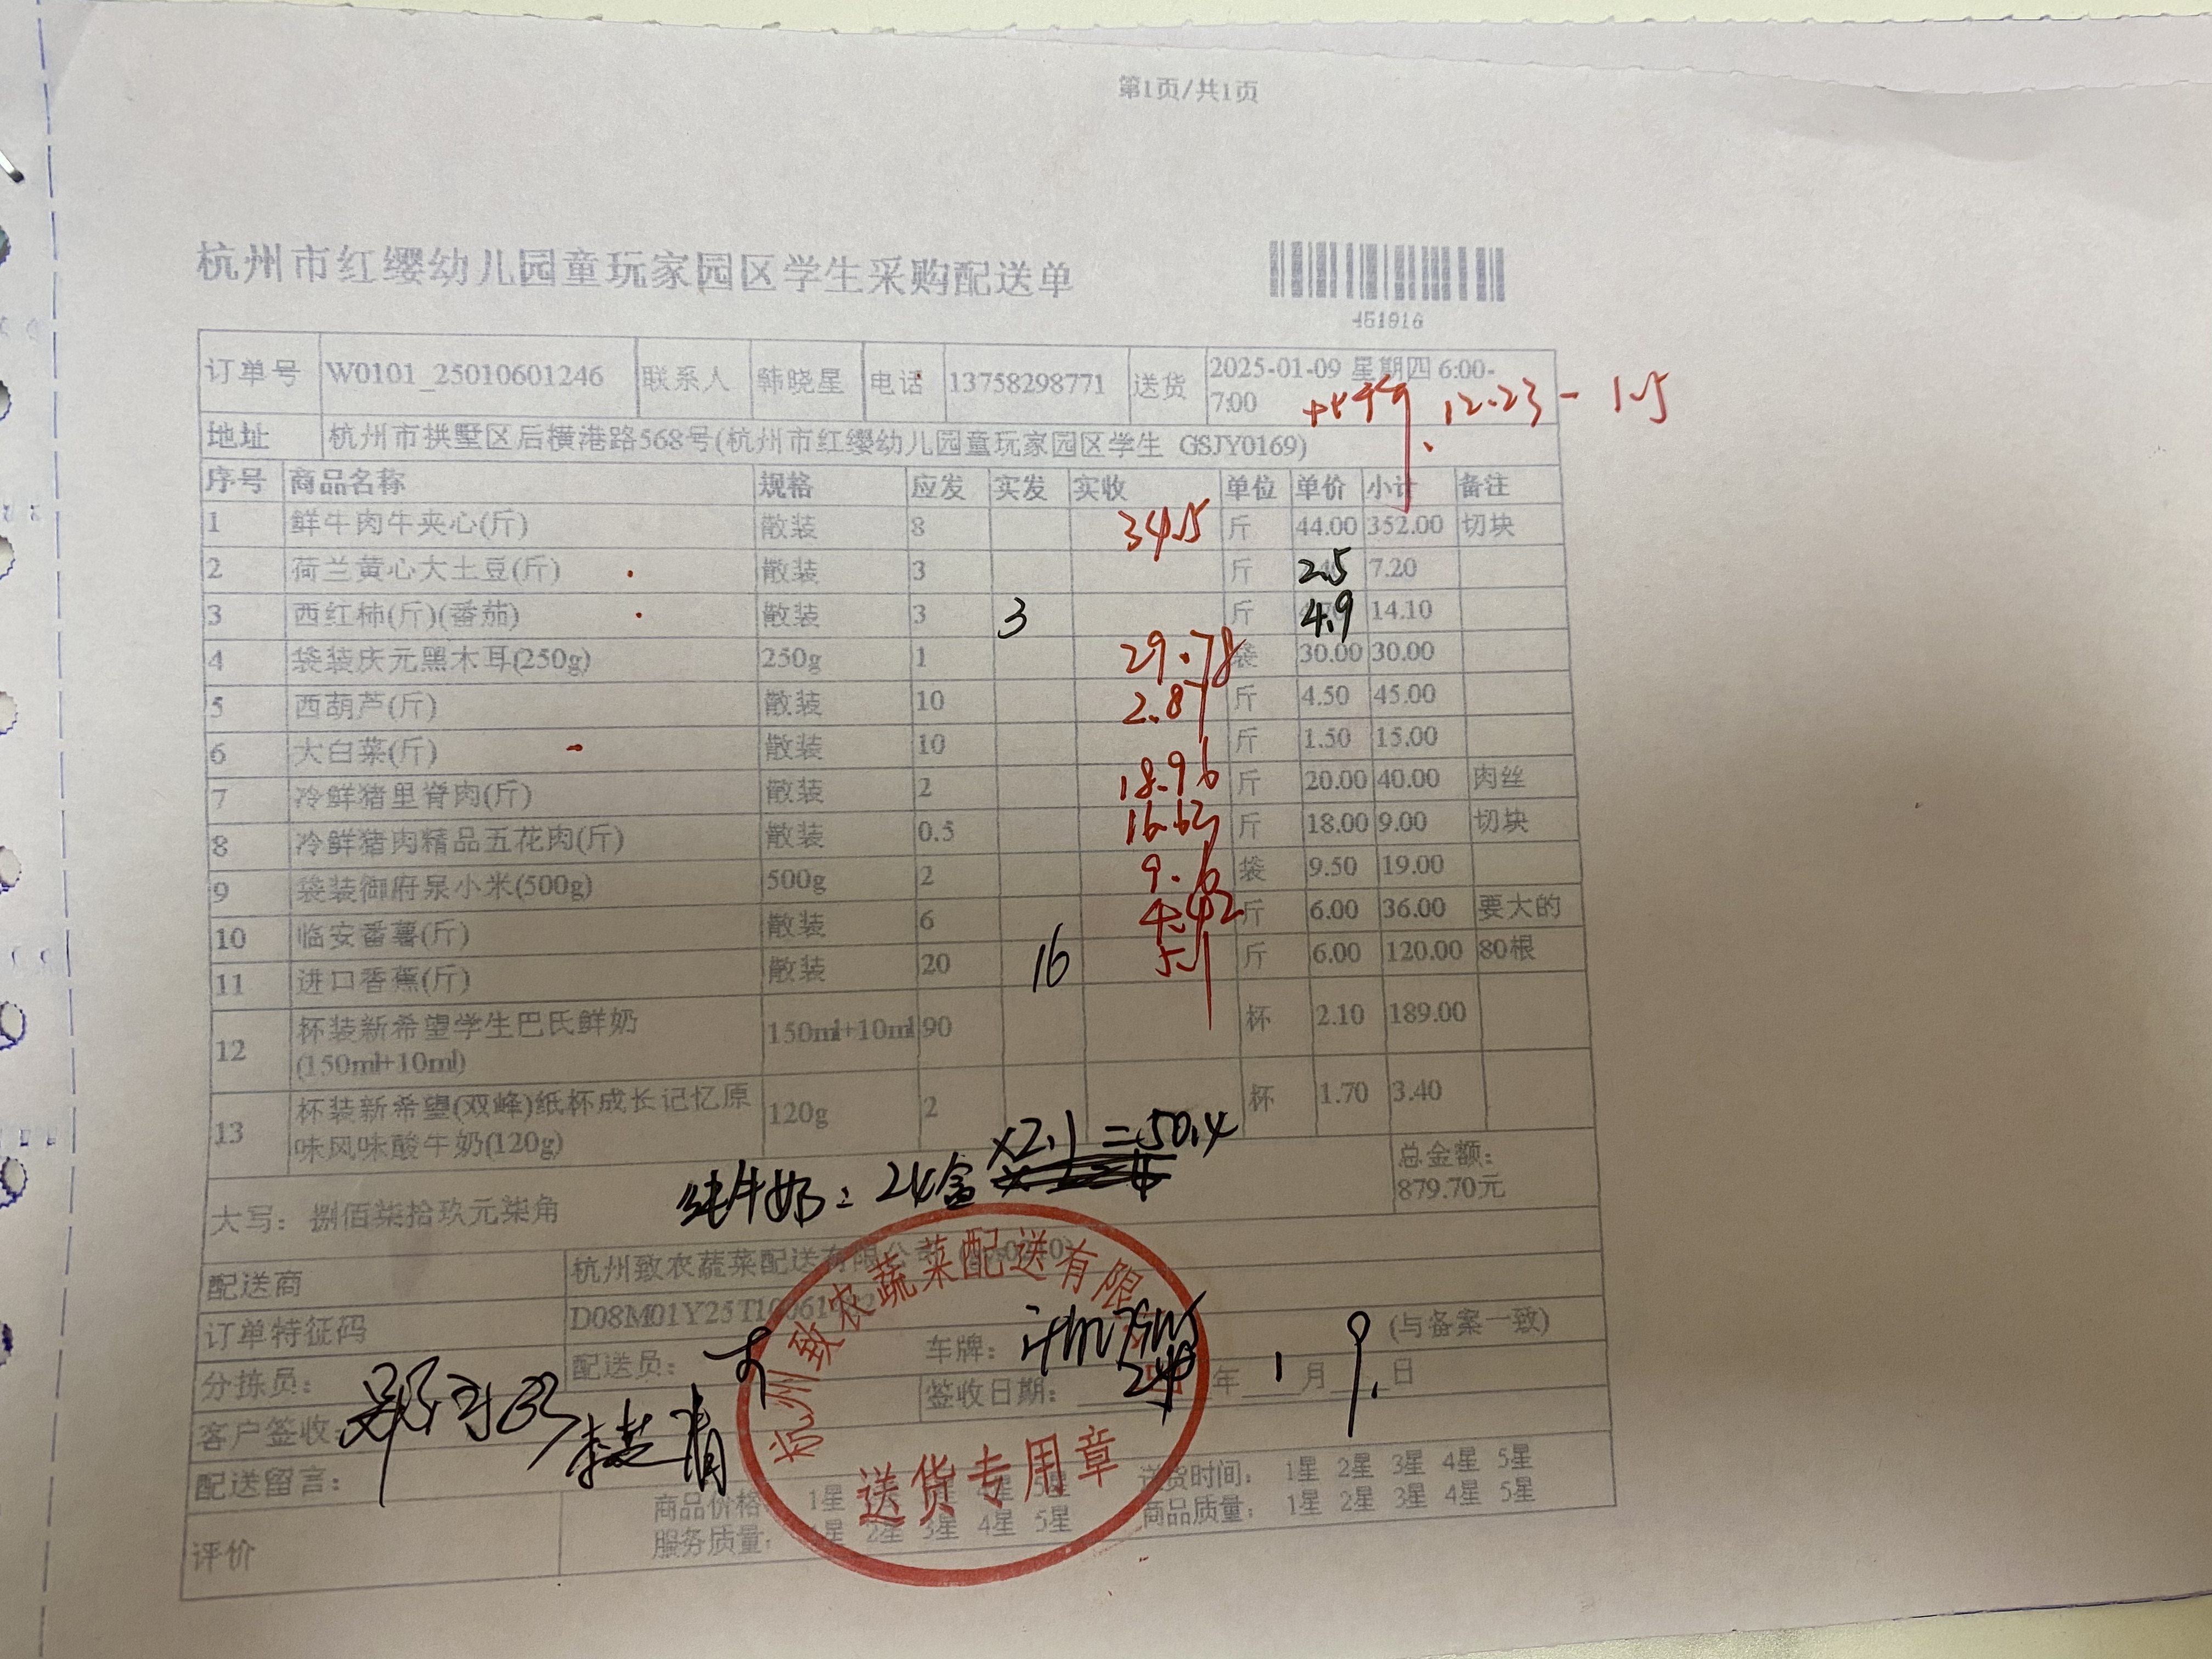 第1页/共1页
杭州市红缨幼儿园童玩家园区学生采购配送单
451916
订单号 W0101_25010601246 联系人 韩晓星 电话 13758298771 送货 2025-01-09 星期四 6:00-7:00
12.23-1.5
地址 杭州市拱墅区后横港路568号(杭州市红缨幼儿园童玩家园区学生 GSJY0169)
序号 商品名称 规格 应发 实发 实收 单位 单价 小计 备注
1 鲜牛肉牛夹心(斤) 散装 8 34.5 斤 44.00 352.00 切块
2 荷兰黄心大土豆(斤) 散装 3 斤 2.5 7.20
3 西红柿(斤)(番茄) 散装 3 3 斤 4.9 14.10
4 袋装庆元黑木耳(250g) 250g 1 29.78 袋 30.00 30.00
5 西葫芦(斤) 散装 10 2.87 斤 4.50 45.00
6 大白菜(斤) 散装 10 斤 1.50 15.00
7 冷鲜猪里脊肉(斤) 散装 2 18.96 斤 20.00 40.00 肉丝
8 冷鲜猪肉精品五花肉(斤) 散装 0.5 16.63 斤 18.00 9.00 切块
9 袋装御府泉小米(500g) 500g 2 9.6 袋 9.50 19.00
10 临安番薯(斤) 散装 6 4.42 斤 6.00 36.00 要大的
11 进口香蕉(斤) 散装 20 16 斤 6.00 120.00 80根
12 杯装新希望学生巴氏鲜奶(150ml+10ml) 150ml+10ml 90 杯 2.10 189.00
13 杯装新希望(双峰)纸杯成长记忆原味风味酸牛奶(120g) 120g 2 杯 1.70 3.40
纯牛奶: 24盒 ×2.1=50.4
大写: 捌佰柒拾玖元柒角 总金额: 879.70元
配送商 杭州致农蔬菜配送有限公司
订单特征码 D08M01Y25T10
分拣员: 配送员: 车牌: (与备案一致)
客户签收: 签收日期: 年 1 月 9 日
配送留言:
评价 商品价格: 1星 5星 送货时间: 1星 2星 3星 4星 5星
服务质量: 1星 2星 3星 4星 5星 商品质量: 1星 2星 3星 4星 5星
杭州致农蔬菜配送有限
送货专用章